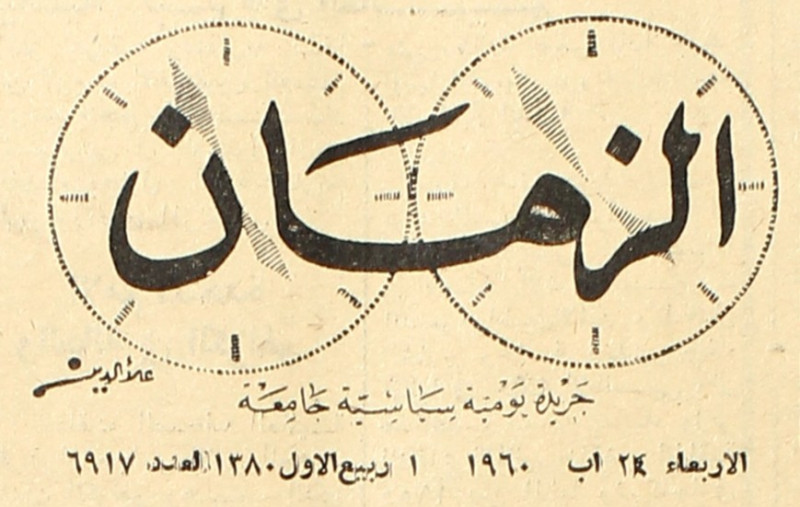 الزمان
علاء الدين
جريدة يومية سياسية جامعة
الاربعاء ٢٤ اب ١٩٦٠ ١ ربيع الاول ١٣٨٠ العدد ٦٩١٧